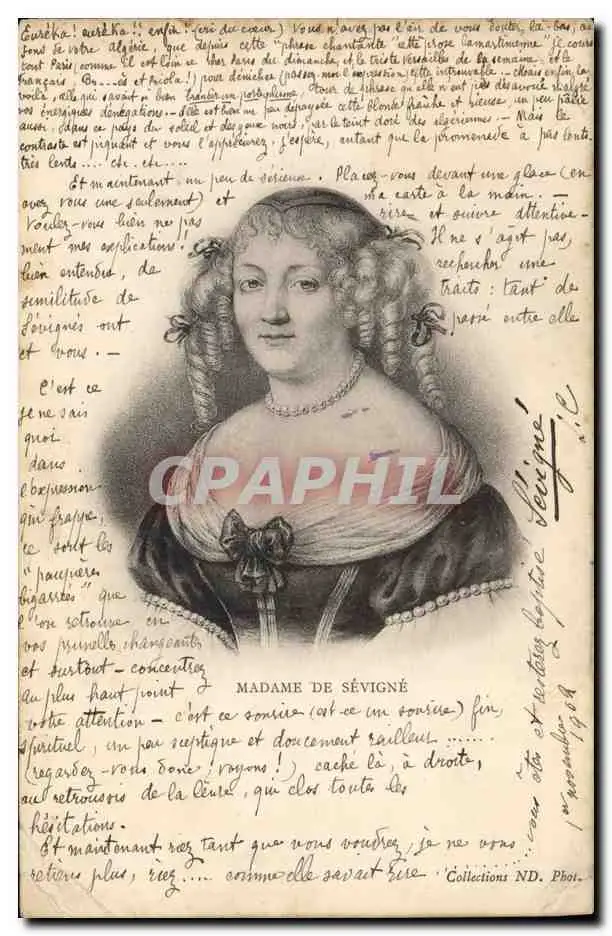 Eurêka! eurêka!! enfin! (cri du cœur) Vous n'avez pas l'air de vous douter, là-bas, au
de votre Algérie, que depuis cette "phrase chantante" cette prose lamartinienne" je cours
tout Paris, comme il est loin ce cher Paris du dimanche, et le triste Versailles de la semaine, et le
français! pour dénicher (passez-moi l'expression) cette introuvable - enfin, la
voilà, elle qui savait si bien phrase qu'elle n'eût pas désavouée malgré
vos énergiques dénégations. - Elle est bien un peu dépaysée cette blonde fraîche et rieuse, un peu pâlie
aussi, dans ce pays du soleil et des yeux noirs, par le teint doré des algériennes. - Mais le
contraste est piquant et vous l'apprécierez, j'espère, autant que la promenade à pas lents
très lents.... etc. etc....
Et maintenant, un peu de sérieux. Placez-vous devant une glace (en
avez vous une seulement) et ma carte à la main. -
Voulez-vous bien ne pas rire et suivre attentive-
ment mes explications. Il ne s'agit pas,
bien entendu, de rechercher une
similitude de traits: tant de
Sévignés ont passé entre elle
et vous. -
C'est ce
je ne sais
quoi
dans
l'expression
qui frappe,
ce sont les
"paupières
bigarrées" que
l'on retrouve en
vos prunelles changeantes
et surtout - concentrez
au plus haut point
votre attention - c'est ce sourire (est-ce un sourire) fin,
spirituel, un peu sceptique et doucement railleur .......
(regardez-vous donc, voyons!) caché là, à droite,
au retroussis de la lèvre, qui clos toutes les
hésitations.
Et maintenant riez tant que vous voudrez, je ne vous
retiens plus, riez.... comme elle savait rire
MADAME DE SÉVIGNÉ
Collections ND. Phot.
vous êtes et resterez baptisé Sévigné
1er novembre 1902
CPAPHIL